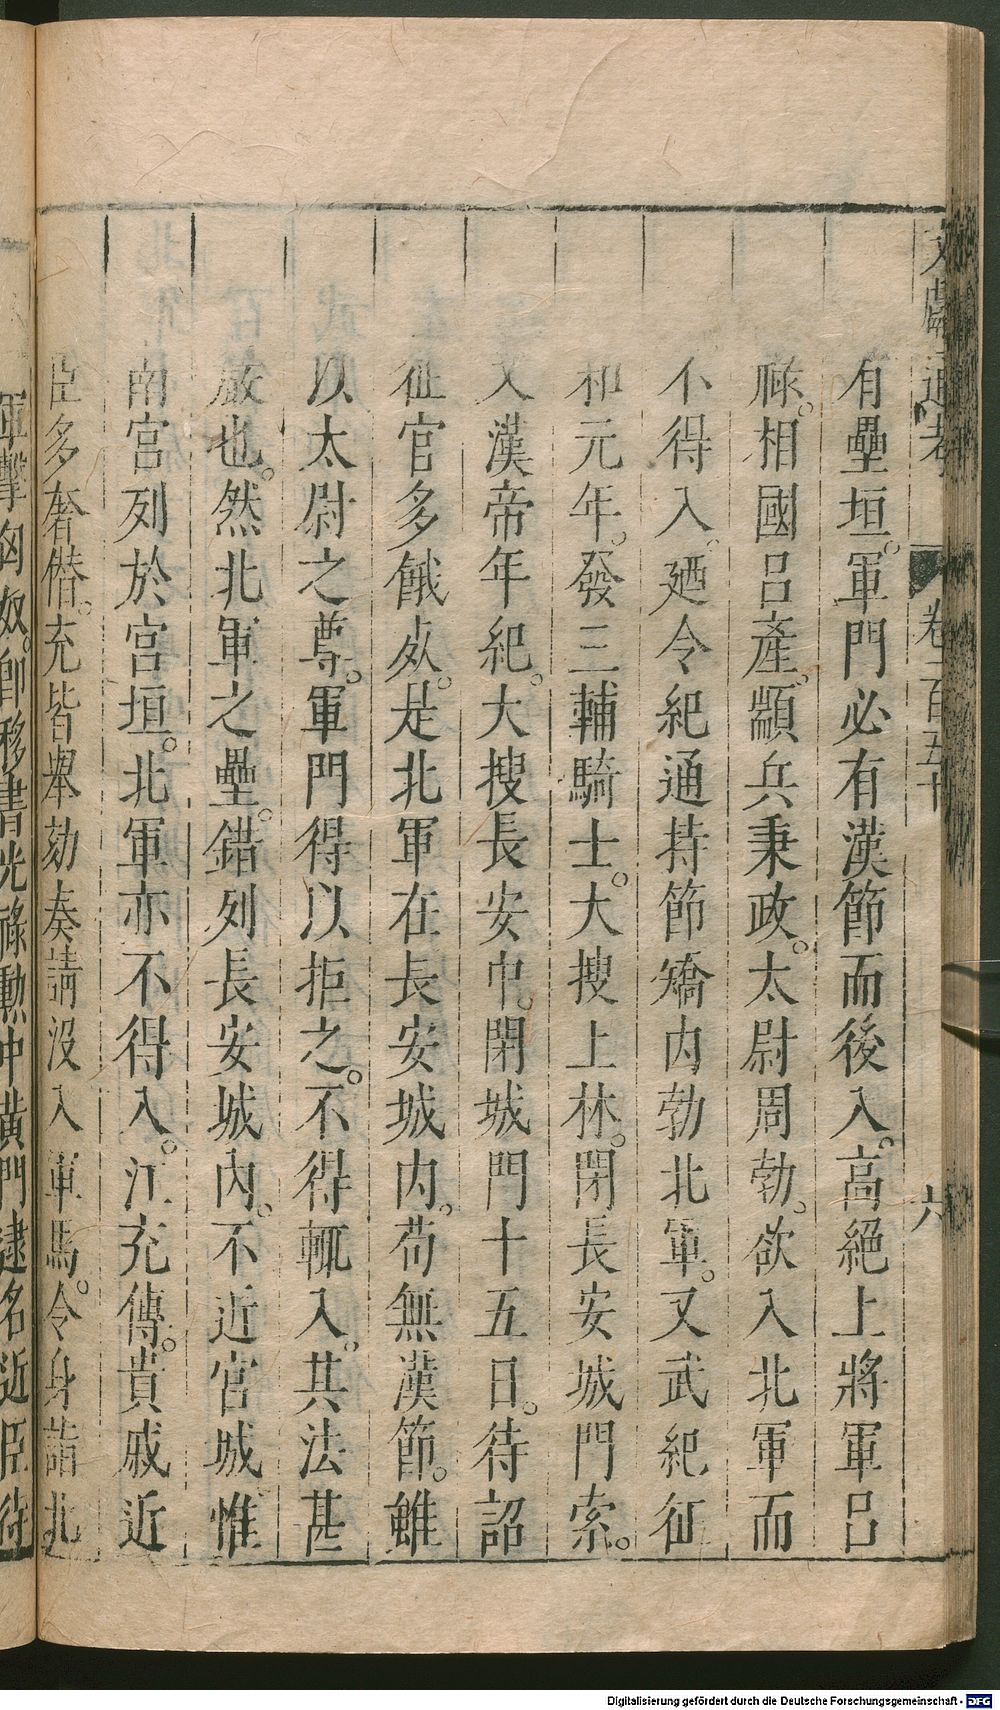 文獻通考 卷一百五十 六
有壘垣。軍門必有漢節而後入。高絕上將軍呂
祿。相國呂產。顓兵秉政。太尉周勃。欲入北軍而
不得入。廼令紀通持節矯内勃北軍。又武紀征
和元年。發三輔騎士。大搜上林。閉長安城門索。
又漢帝年紀。大搜長安中。閉城門十五日。待詔
征官多餓死。是北軍在長安城内。苟無漢節。雖
以太尉之尊。軍門得以拒之。不得輒入。其法甚
嚴也。然北軍之壘。錯列長安城内。不近宮城惟
南宮列於宮垣。北軍亦不得入。江充傳。貴戚近
臣多奢僭。充皆舉劾奏請没入車馬。令身詣北
軍擊匈奴。卽移書光祿勲中黃門逮名近臣待
Digitalisierung gefördert durch die Deutsche Forschungsgemeinschaft - DFG